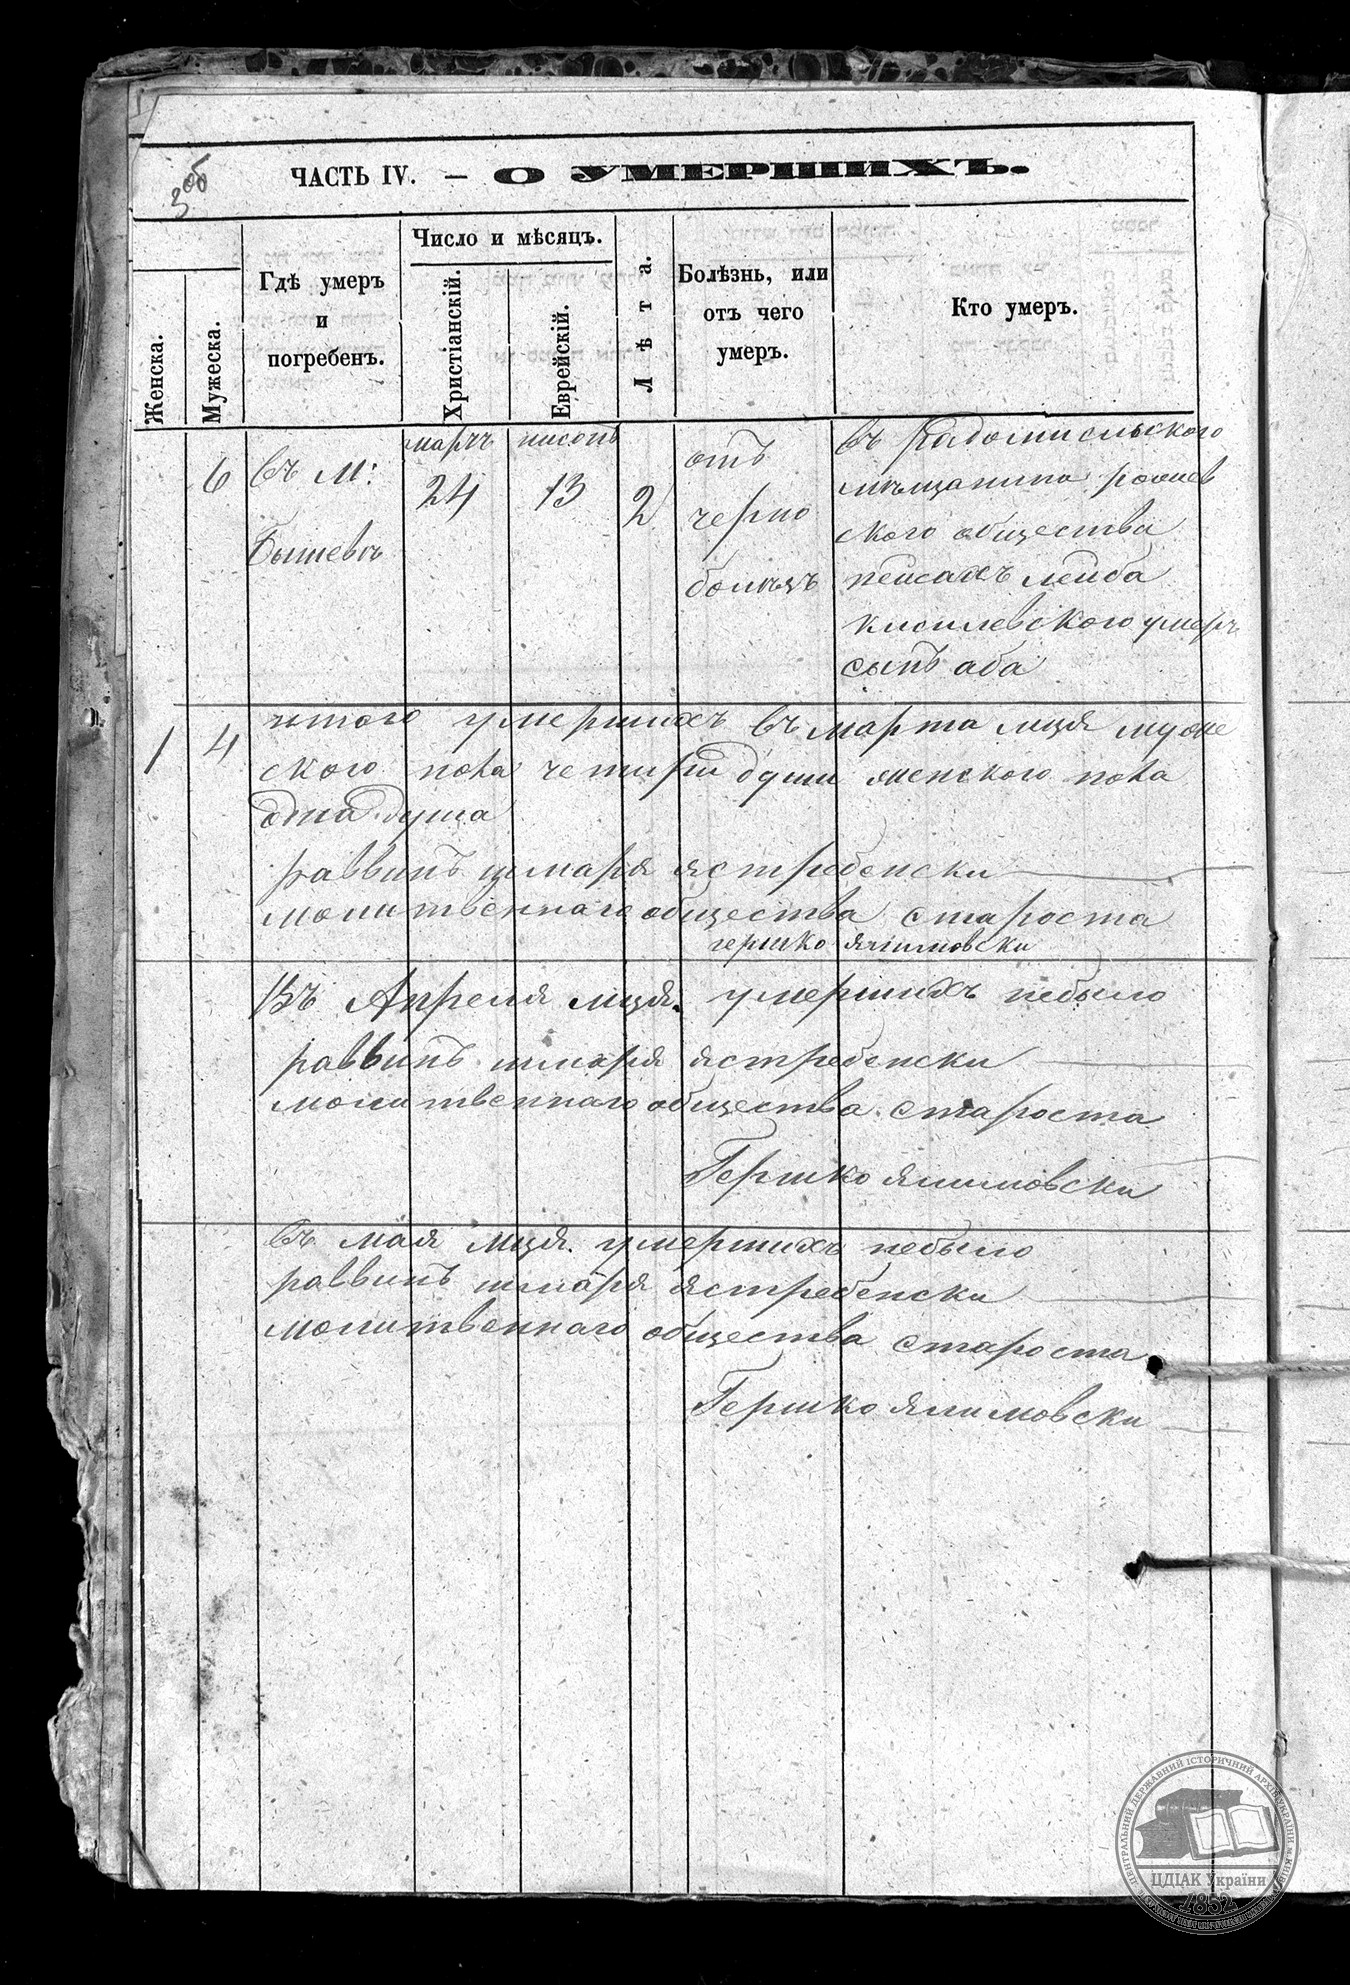 3об
ЧАСТЬ IV. — О УМЕРШИХЪ.
Женска.
Мужеска.
Гдѣ умеръ
и
погребенъ.
Число и мѣсяцъ.
Христіанскій.
Еврейскій.
Лѣта.
Болѣзнь, или
отъ чего
умеръ.
Кто умеръ.
6
въ м:
Бышевъ
мартъ
24
нисонъ
13
2
отъ
черно
болѣцъ
въ Радомисльского
мѣщанина
ского общества
пейсахъ лейба
кисилевского умеръ
сынъ аба
1 4
итого умершихъ въ марта мцдя муже
ского пола четири души женского пола
одна душа
раввинъ шмаря ястребенски
молитвеннаго общества староста
гершко ялимовски
Въ Апреля мцдя. умершихъ небыло
раввинъ шмаря ястребенски
молитвеннаго общества староста
Гершко ялимовски
въ мая мцдя. умершихъ небыло
раввинъ шмаря ястребенски
молитвеннаго общества староста
Гершко ялимовски
ЦЕНТРАЛЬНИЙ ДЕРЖАВНИЙ ІСТОРИЧНИЙ АРХІВ УКРАЇНИ м. КИЇВ
ЦДІАК України
1852